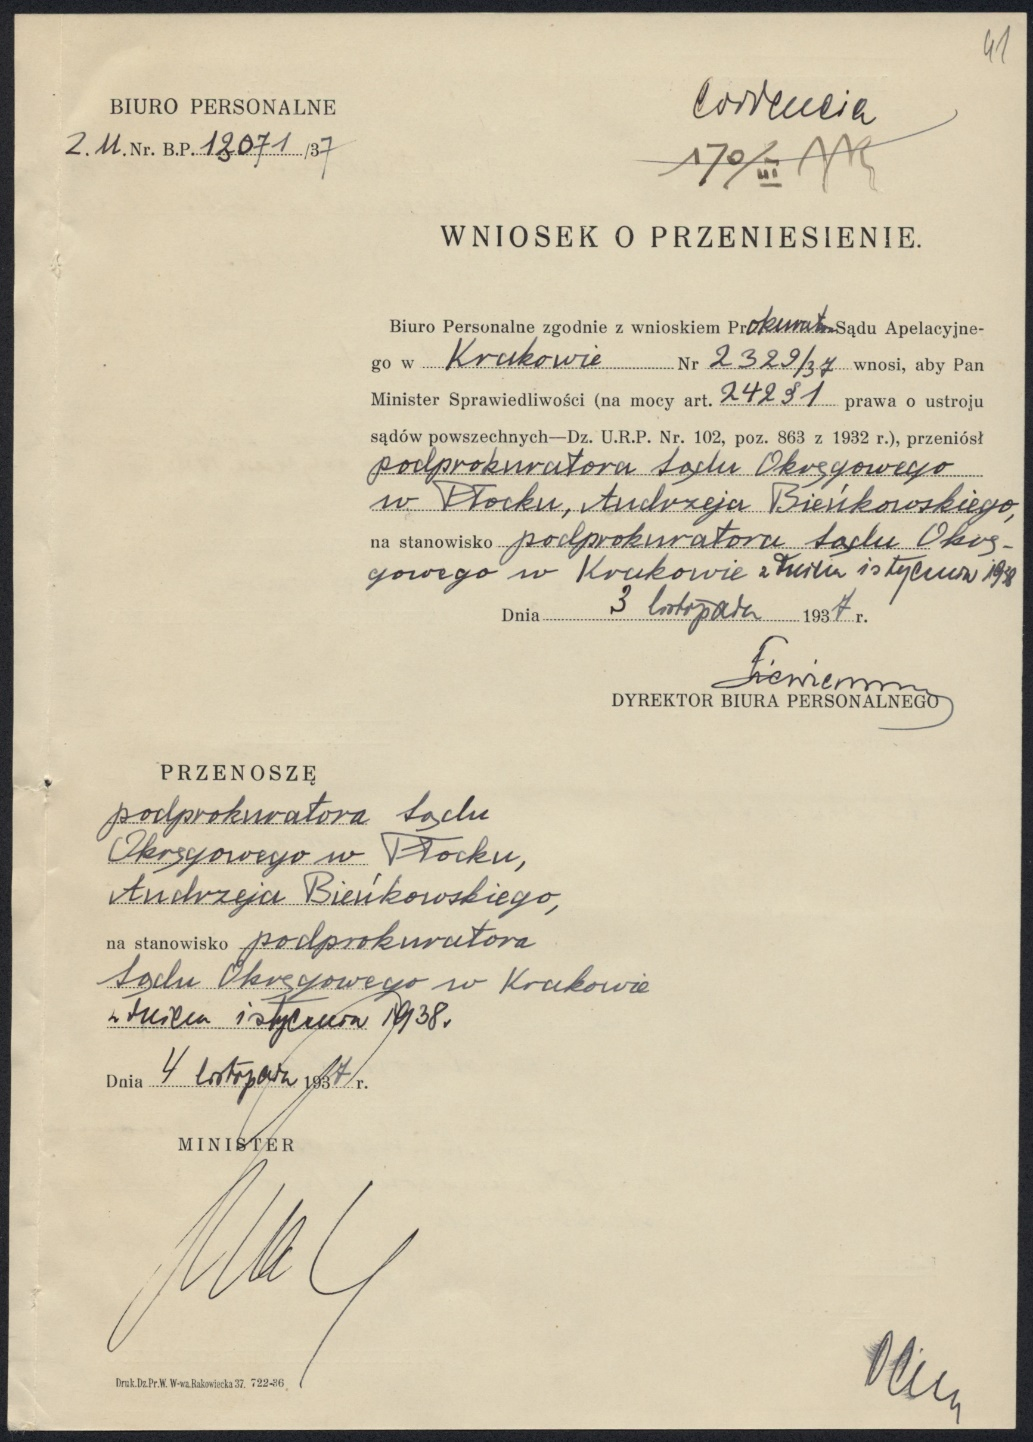 41
BIURO PERSONALNE
2. M. Nr. B.P. 13071/37
170/III
WNIOSEK O PRZENIESIENIE.
Biuro Personalne zgodnie z wnioskiem Prokurat. Sądu Apelacyjne-
go w Krakowie Nr 2329/37 wnosi, aby Pan
Minister Sprawiedliwości (na mocy art. 242 § 1 prawa o ustroju
sądów powszechnych—Dz. U.R.P. Nr. 102, poz. 863 z 1932 r.), przeniósł
podprokuratora Sądu Okręgowego
w Płocku, Andrzeja Bieńkowskiego,
na stanowisko podprokuratora Sądu Okrę-
gowego w Krakowie z dniem 1 stycznia 1938
Dnia 3 listopada 1937 r.
DYREKTOR BIURA PERSONALNEGO
PRZENOSZĘ
podprokuratora Sądu
Okręgowego w Płocku,
Andrzeja Bieńkowskiego,
na stanowisko podprokuratora
Sądu Okręgowego w Krakowie
z dniem 1 stycznia 1938.
Dnia 4 listopada 1937 r.
MINISTER
Druk.Dz.Pr.W. W-wa.Rakowiecka 37. 722-36